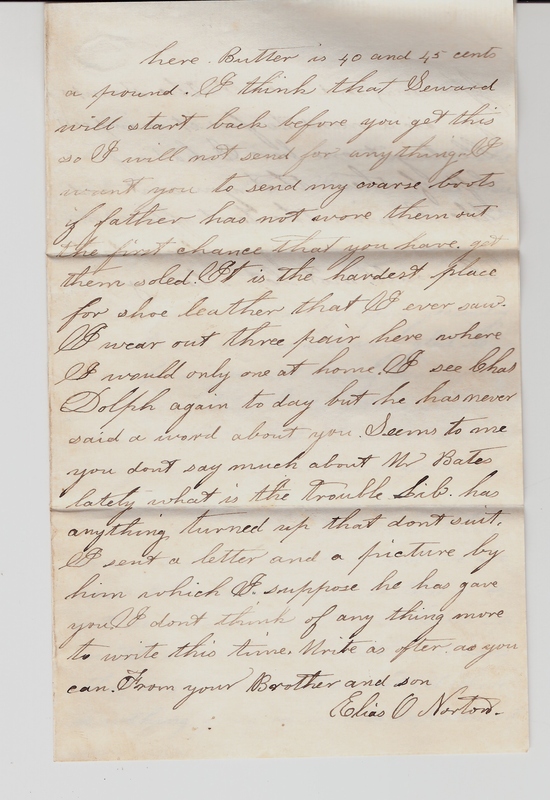 here. Butter is 40 and 45 cents
a pound. I think that Seward
will start back before you get this
so I will not send for anything I
want you to send my coarse boots
if father has not wore them out
the first chance that you have. get
them soled. It is the hardest place
for shoe leather that I ever saw.
I wear out three pair here where
I would only one at home. I see Chas
Dolph again to day but he has never
said a word about you. Seems to me
you dont say much about Mr Bates
lately what is the trouble Lib. has
anything turned up that dont suit.
I sent a letter and a picture by
him which I suppose he has gave
you. I dont think of any thing more
to write this time. Write as often as you
can. From your Brother and son
Elias O Norton.